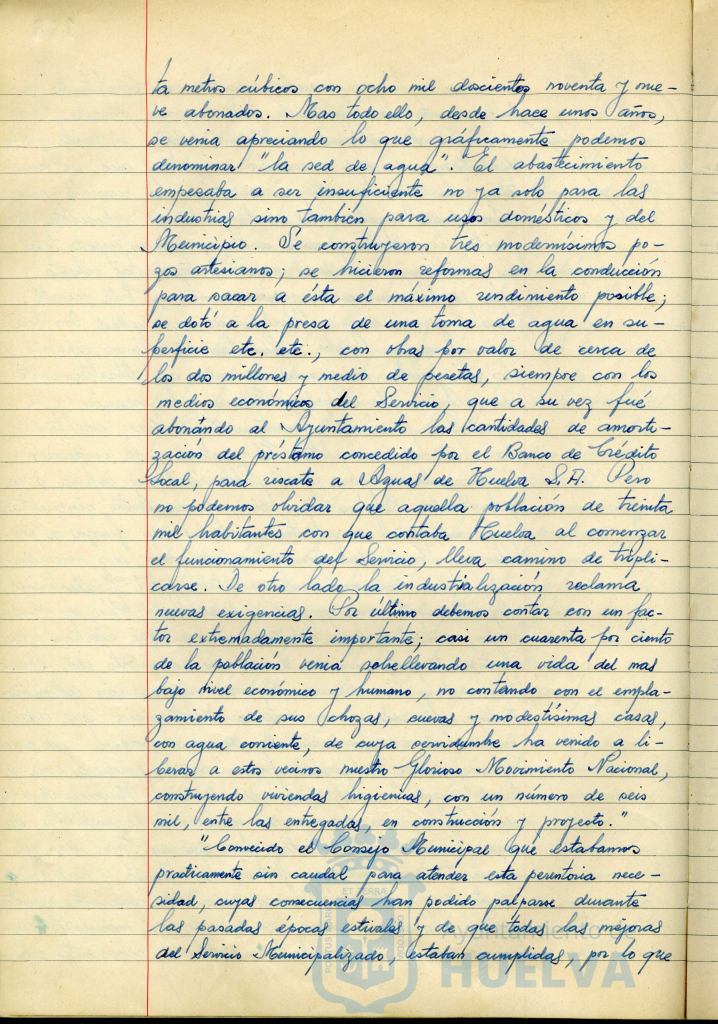 ta metros cúbicos con ocho mil doscientos noventa y nue-
ve abonados. Mas todo ello, desde hace unos años,
se venia apreciando lo que gráficamente podemos
denominar "la sed de agua". El abastecimiento
empesaba a ser insuficiente no ya solo para las
industrias sino también para usos domésticos y del
Municipio. Se construyeron tres modernísimos po-
zos artesianos; se hicieron reformas en la conducción
para sacar a ésta el máximo rendimiento posible;
se dotó a la presa de una toma de agua en su-
perficie etc. etc., con obras por valor de cerca de
los dos millones y medio de pesetas, siempre con los
medios económicos del Servicio, que a su vez fué
abonando al Ayuntamiento las cantidades de amorti-
zación del préstamo concedido por el Banco de Crédito
Local, para rescate a Aguas de Huelva S.A. Pero
no podemos olvidar que aquella población de treinta
mil habitantes con que contaba Huelva al comenzar
el funcionamiento del Servicio, lleva camino de tripli-
carse. De otro lado la industrialización reclama
nuevas exigencias. Por último debemos contar con un fac-
tor extremadamente importante; casi un cuarenta por ciento
de la población venia sobrellevando una vida del mas
bajo nivel económico y humano, no contando con el empla-
zamiento de sus chozas, cuevas y modestísimas casas,
con agua corriente, de cuya servidumbre ha venido a li-
berar a estos vecinos nuestro Glorioso Movimiento Nacional,
construyendo viviendas higienicas, con un número de seis
mil, entre las entregadas, en construcción y proyecto."
"Convecido el Consejo Municipal que estabamos
practicamente sin caudal para atender esta perentoria nece-
sidad, cuyas consecuencias han podido palparse durante
las pasadas épocas estivales y de que todas las mejoras
del Servicio Municipalizado, estaban cumplidas, por lo que
Ayuntamiento
HUELVA